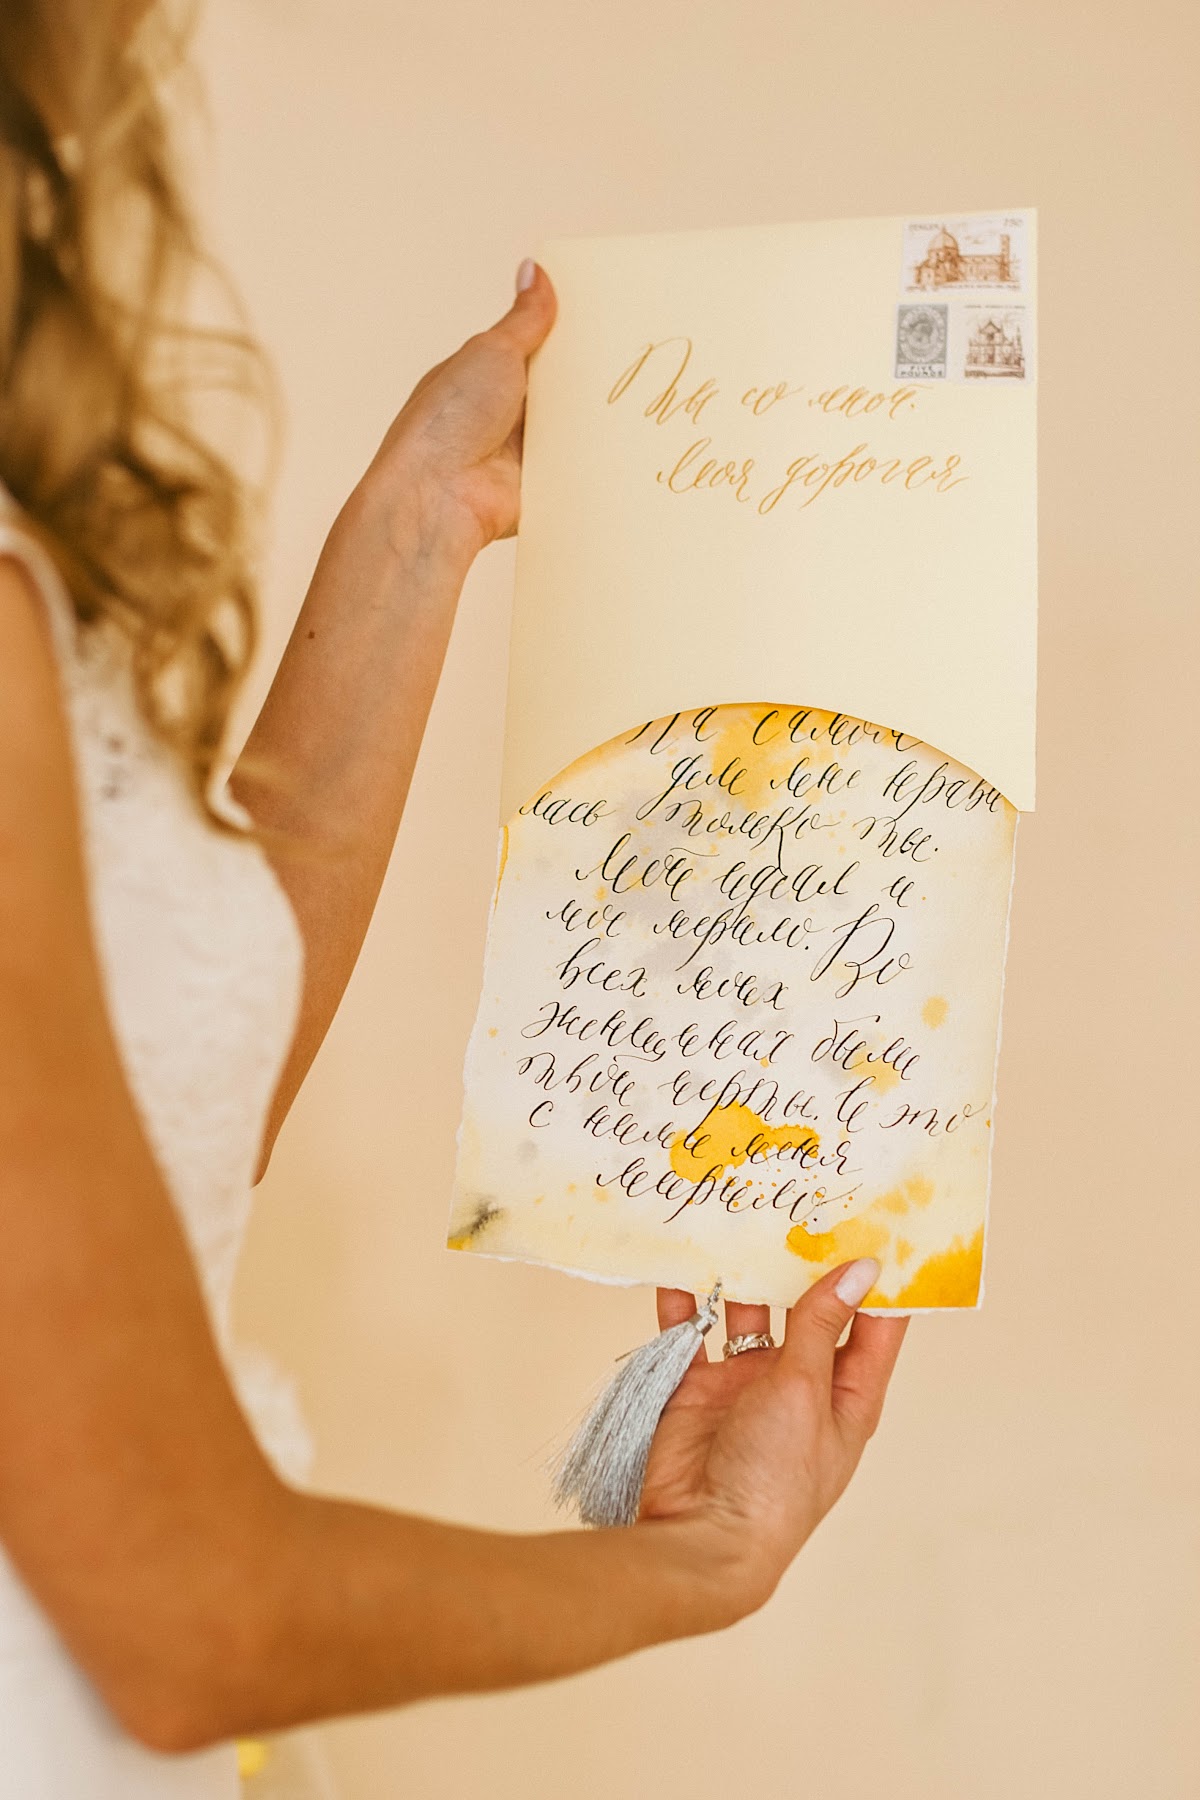 750
FIVE
POUNDS
Ты со мной.
Моя дорогая
На самом
деле мне нрави
лась только ты.
Мой идеал и
мое мерило. Во
всех моих
женщинах были
твои черты. И это
с ними меня
мирило.